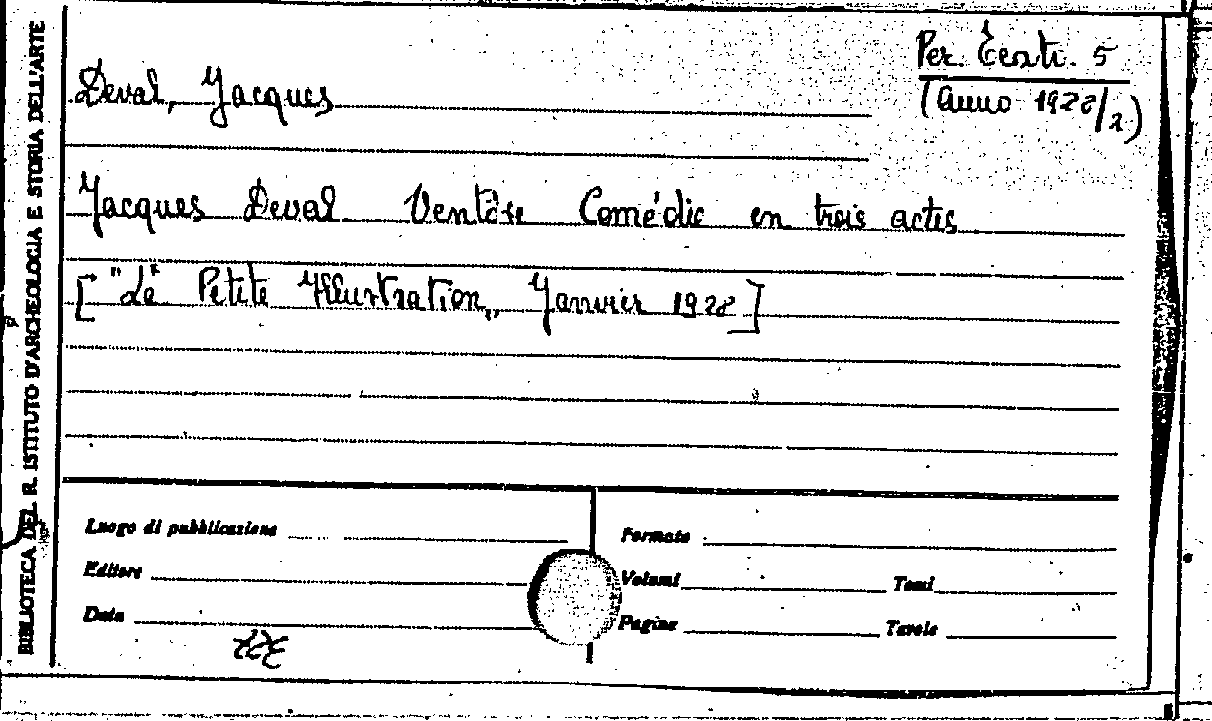 Per. Teatr. 5
(Anno 1928/2)
Deval, Jacques
Jacques Deval Ventôse Comédie en trois actes
["La Petite Illustration", Janvier 1928]
BIBLIOTECA DEL R. ISTITUTO D'ARCHEOLOGIA E STORIA DELL'ARTE
Luogo di pubblicazione
Formato
Editore
Volumi Tomi
Data
Pagine Tavole